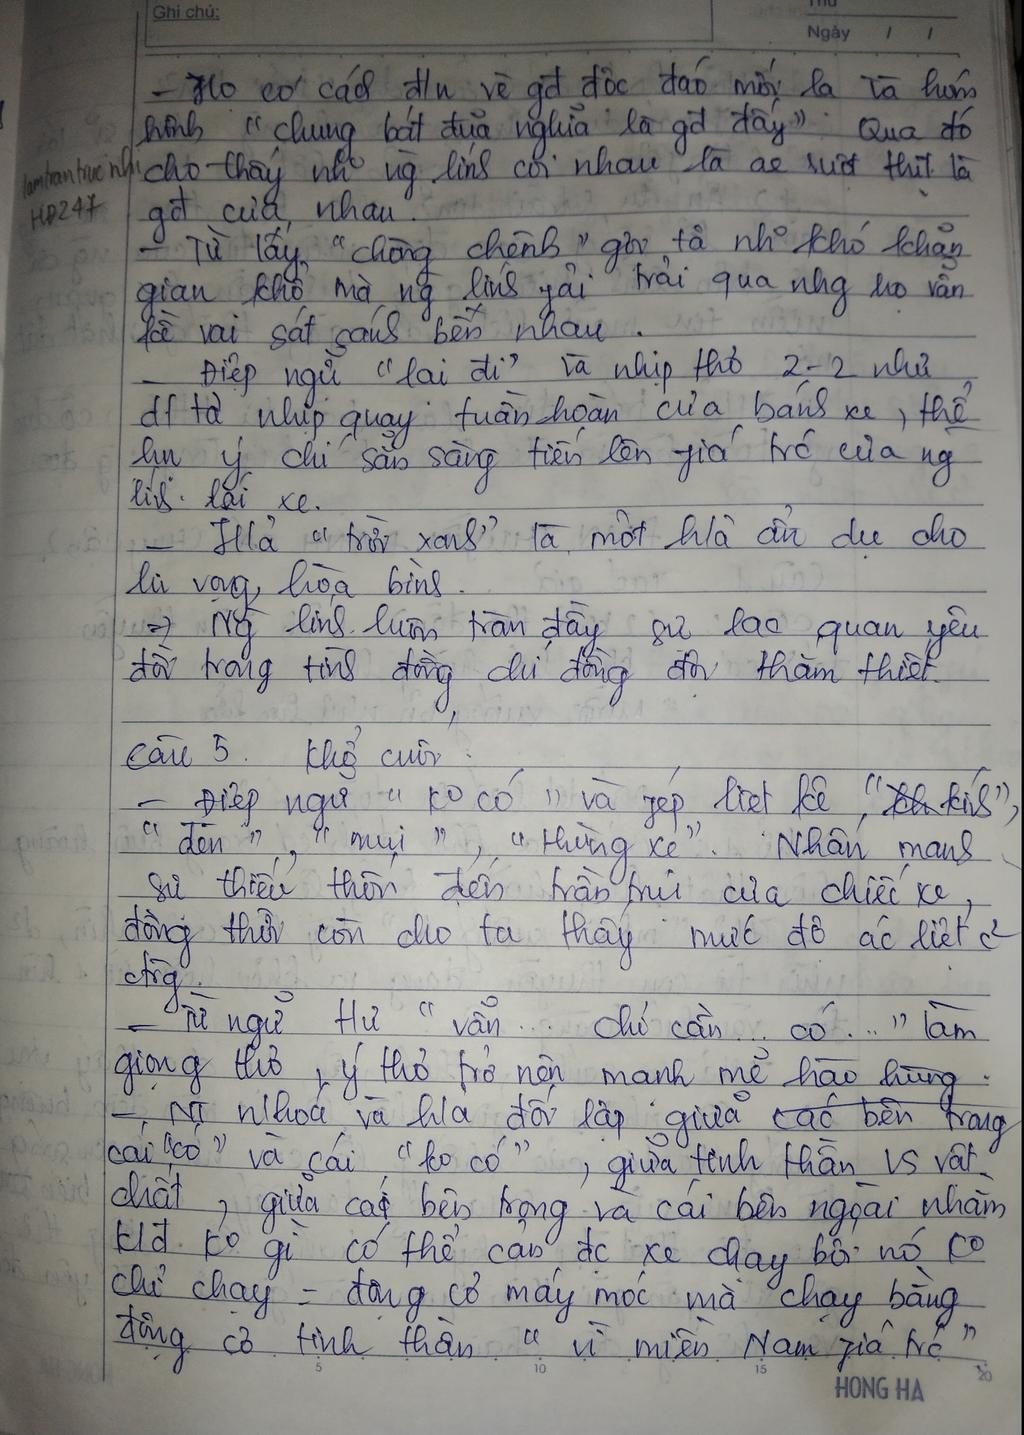 Ghi chú:
Thứ
Ngày / /
- Họ có cách đ/n về gđ độc đáo mới lạ và hóm
hỉnh "chung bát đũa nghĩa là gđ đấy". Qua đó
cho thấy nh~ ng lính coi nhau là ae ruột thịt là
gđ của nhau.
lamtrantrucnhi
HĐ247
- Từ láy "chông chênh" gợi tả nh~ khó khăn
gian khổ mà ng lính phải trải qua nhg họ vẫn
kề vai sát cánh bên nhau.
- Điệp ngữ "lại đi" và nhịp thơ 2-2 như
d/t nhịp quay tuần hoàn của bánh xe, thể
hn ý chí sẵn sàng tiến lên phía trc của ng
lính lái xe.
- H/ả "trời xanh" là một h/ả ẩn dụ cho
hi vọng, hòa bình.
=> Ng lính luôn tràn đầy sự lạc quan yêu
đời trong tình đồng chí đồng đội thắm thiết.
Câu 5. Khổ cuối.
- Điệp ngữ "ko có" và phép liệt kê, "kính",
"đèn", "mui", "thùng xe". Nhấn mạnh
sự thiếu thốn đến trần trụi của chiếc xe,
đồng thời còn cho ta thấy mức độ ác liệt c²
ctrg.
- Từ ngữ Hư "vẫn... chỉ cần... có..." làm
giọng thơ, ý thơ trở nên mạnh mẽ hào hùng.
- NT Nhoá và h/a đối lập giữa các bên trong
cái "có" và cái "ko có", giữa tinh thần VS vật
chất, giữa cái bên trong và cái bên ngoài nhằm
kđ ko gì có thể cản đc xe chạy bởi nó ko
chỉ chạy = động cơ máy móc mà chạy bằng
động cơ tinh thần "vì miền Nam phía trc"
5 10 15 20
HONG HA